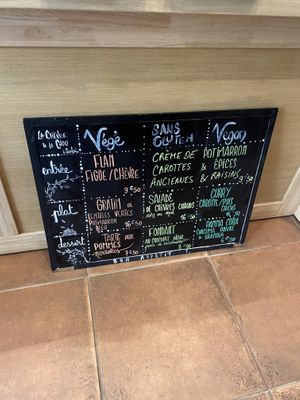 La Chèvre & le Chou
Végé
SANS GLUTEN
Vegan
entrée
FLAN
FIGUE/CHÈVRE
9€50
CRÈME DE POTIMARRON
CAROTTES & ÉPICES
ANCIENNES & RAISINS
8€50
plat
GRATIN DE
LENTILLES VERTES
POTIMARRON
SALADE
DE CHÈVRES CHAUDS
CURRY
CAROTTE/POIS
CHICHE
dessert
TARTE AUX
POMMES
6€50
FONDANT
AU CHOCOLAT NOIR
PANNA COTA
BON APPÉTIT